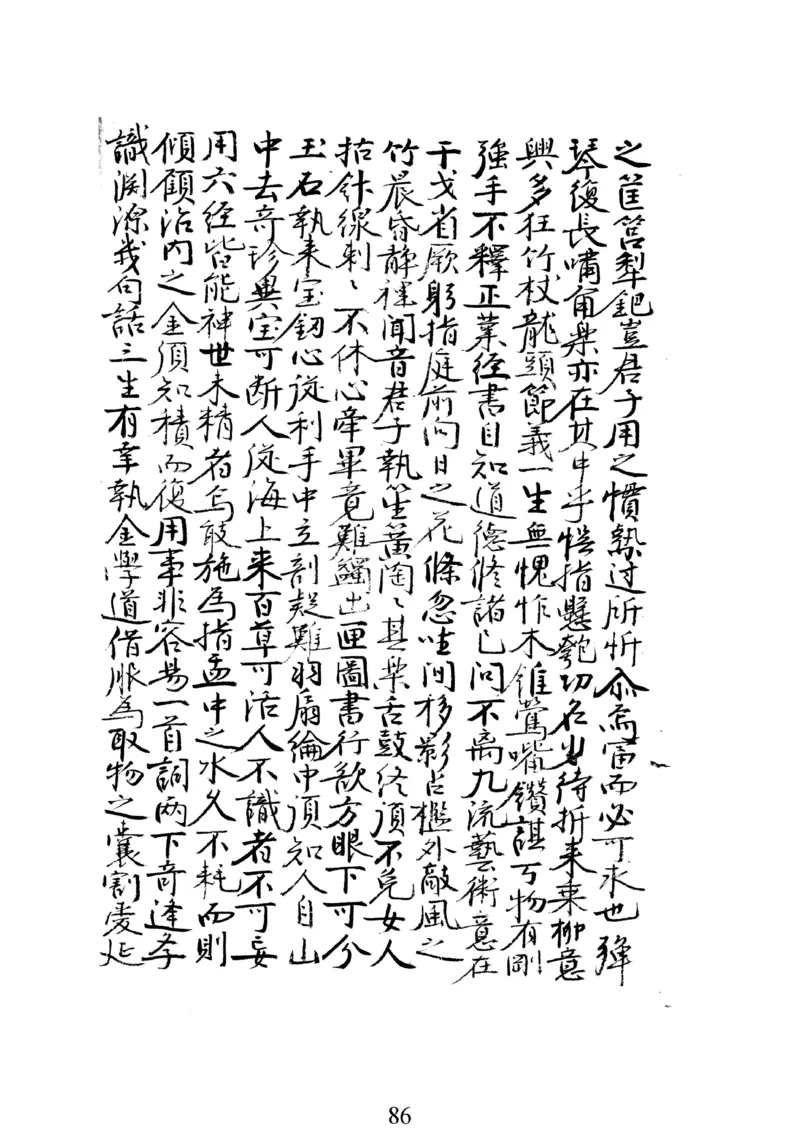 之筐筥犁鈀豈君子用之慣執过所忻 為富而必可求也 彈
琴復長嘯角樂亦在其中乎 指懸匏功名 待折来桒柳意
興多狂竹杖龍頭節義一生無愧怍木錐鶯嘴鑽謀 物有剛
強手不釋正業径書目知道德修諸己问不离九流藝術意在
干戈省厥躬指庭前向日之花條忽 间移影占檻外敲風之
竹晨昏静裡闻音君子執笙簧陶〻其樂舌鼓终湏不免女人
拈針線刺〻不休心牵畢竟難蠲出匣圖書行款方眼下可分
玉石執来宝釰心従利手中立剖疑難羽扇綸巾湏知人自山
中去奇珍異宝可断人従海上来百草可活人不識者不可妄
用六经皆能神世未精者烏敢施為指盂中之水久不耗而則
傾顧治内之金須知積而後用事非容易一首詞两下奇逢李
識渊源幾句話三生有幸執金學道借服為取物之囊割爱处
86